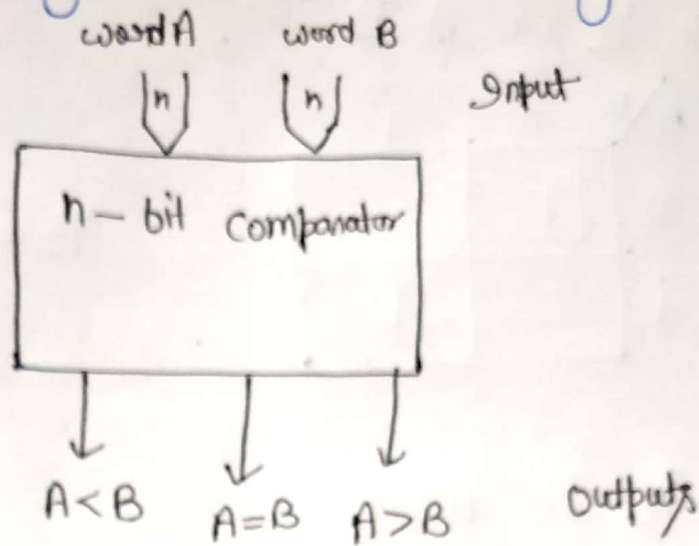 word A word B
n n Input
n - bit comparator
A<B A=B A>B Outputs